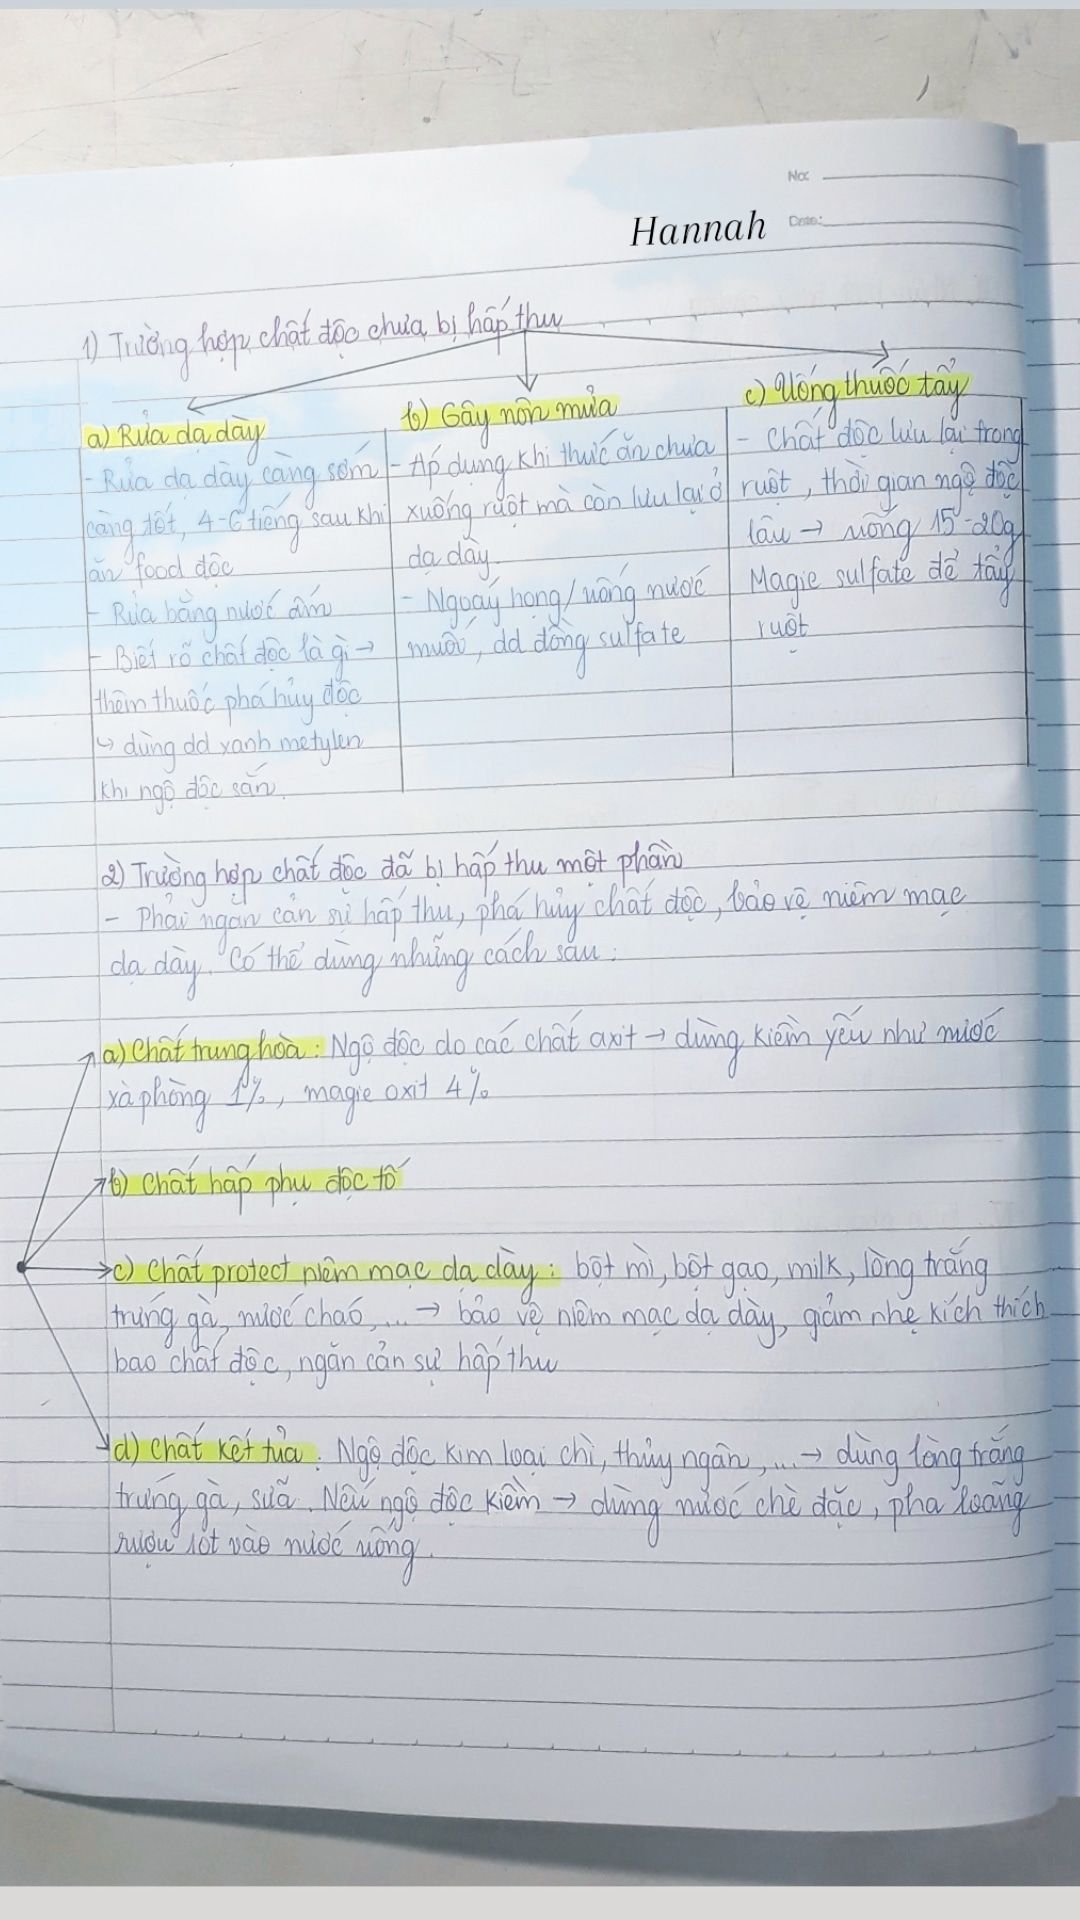 No:
Hannah Date:
1) Trường hợp chất độc chưa bị hấp thu
a) Rửa dạ dày
- Rửa dạ dày càng sớm
càng tốt, 4-6 tiếng sau khi
ăn food độc
- Rửa bằng nước ấm
- Biết rõ chất độc là gì →
thêm thuốc phá hủy độc
↳ dùng dd xanh metylen
khi ngộ độc sắn.
b) Gây nôn mửa
- Áp dụng khi thức ăn chưa
xuống ruột mà còn lưu lại ở
dạ dày.
- Ngoáy họng/uống nước
muối, dd đồng sulfate
c) Uống thuốc tẩy
- Chất độc lưu lại trong
ruột, thời gian ngộ độc
lâu → uống 15-20g
Magie sulfate để tẩy
ruột
2) Trường hợp chất độc đã bị hấp thu một phần
- Phải ngăn cản sự hấp thu, phá hủy chất độc, bảo vệ niêm mạc
dạ dày. Có thể dùng những cách sau:
a) Chất trung hòa: Ngộ độc do các chất axit → dùng kiềm yếu như nước
xà phòng 1%, magie oxit 4%
b) Chất hấp phụ độc tố
c) Chất protect niêm mạc dạ dày: bột mì, bột gạo, milk, lòng trắng
trứng gà, nước cháo,... → bảo vệ niêm mạc dạ dày, giảm nhẹ kích thích
bao chất độc, ngăn cản sự hấp thu
d) Chất kết tủa: Ngộ độc kim loại chì, thủy ngân,... → dùng lòng trắng
trứng gà, sữa. Nếu ngộ độc kiềm → dùng nước chè đặc, pha loãng
rượu iôt vào nước uống.